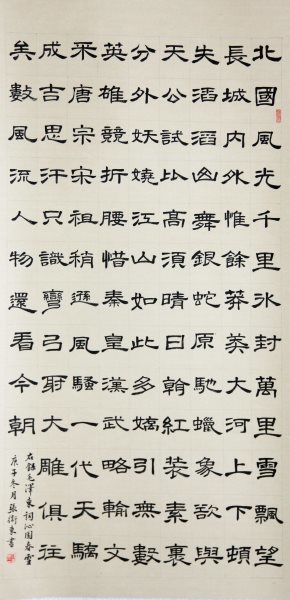 北國風光千里冰封萬里雪飄望
長城內外惟餘莽莽大河上下頓
失滔滔山舞銀蛇原馳蠟象欲與
天公試比高須晴日看紅裝素裹
分外妖嬈江山如此多嬌引無數
英雄競折腰惜秦皇漢武略輸文
采唐宗宋祖稍遜風騷一代天驕
成吉思汗只識彎弓射大雕俱往
矣數風流人物還看今朝
右錄毛澤東詞沁園春雪
庚子冬月張衛東書